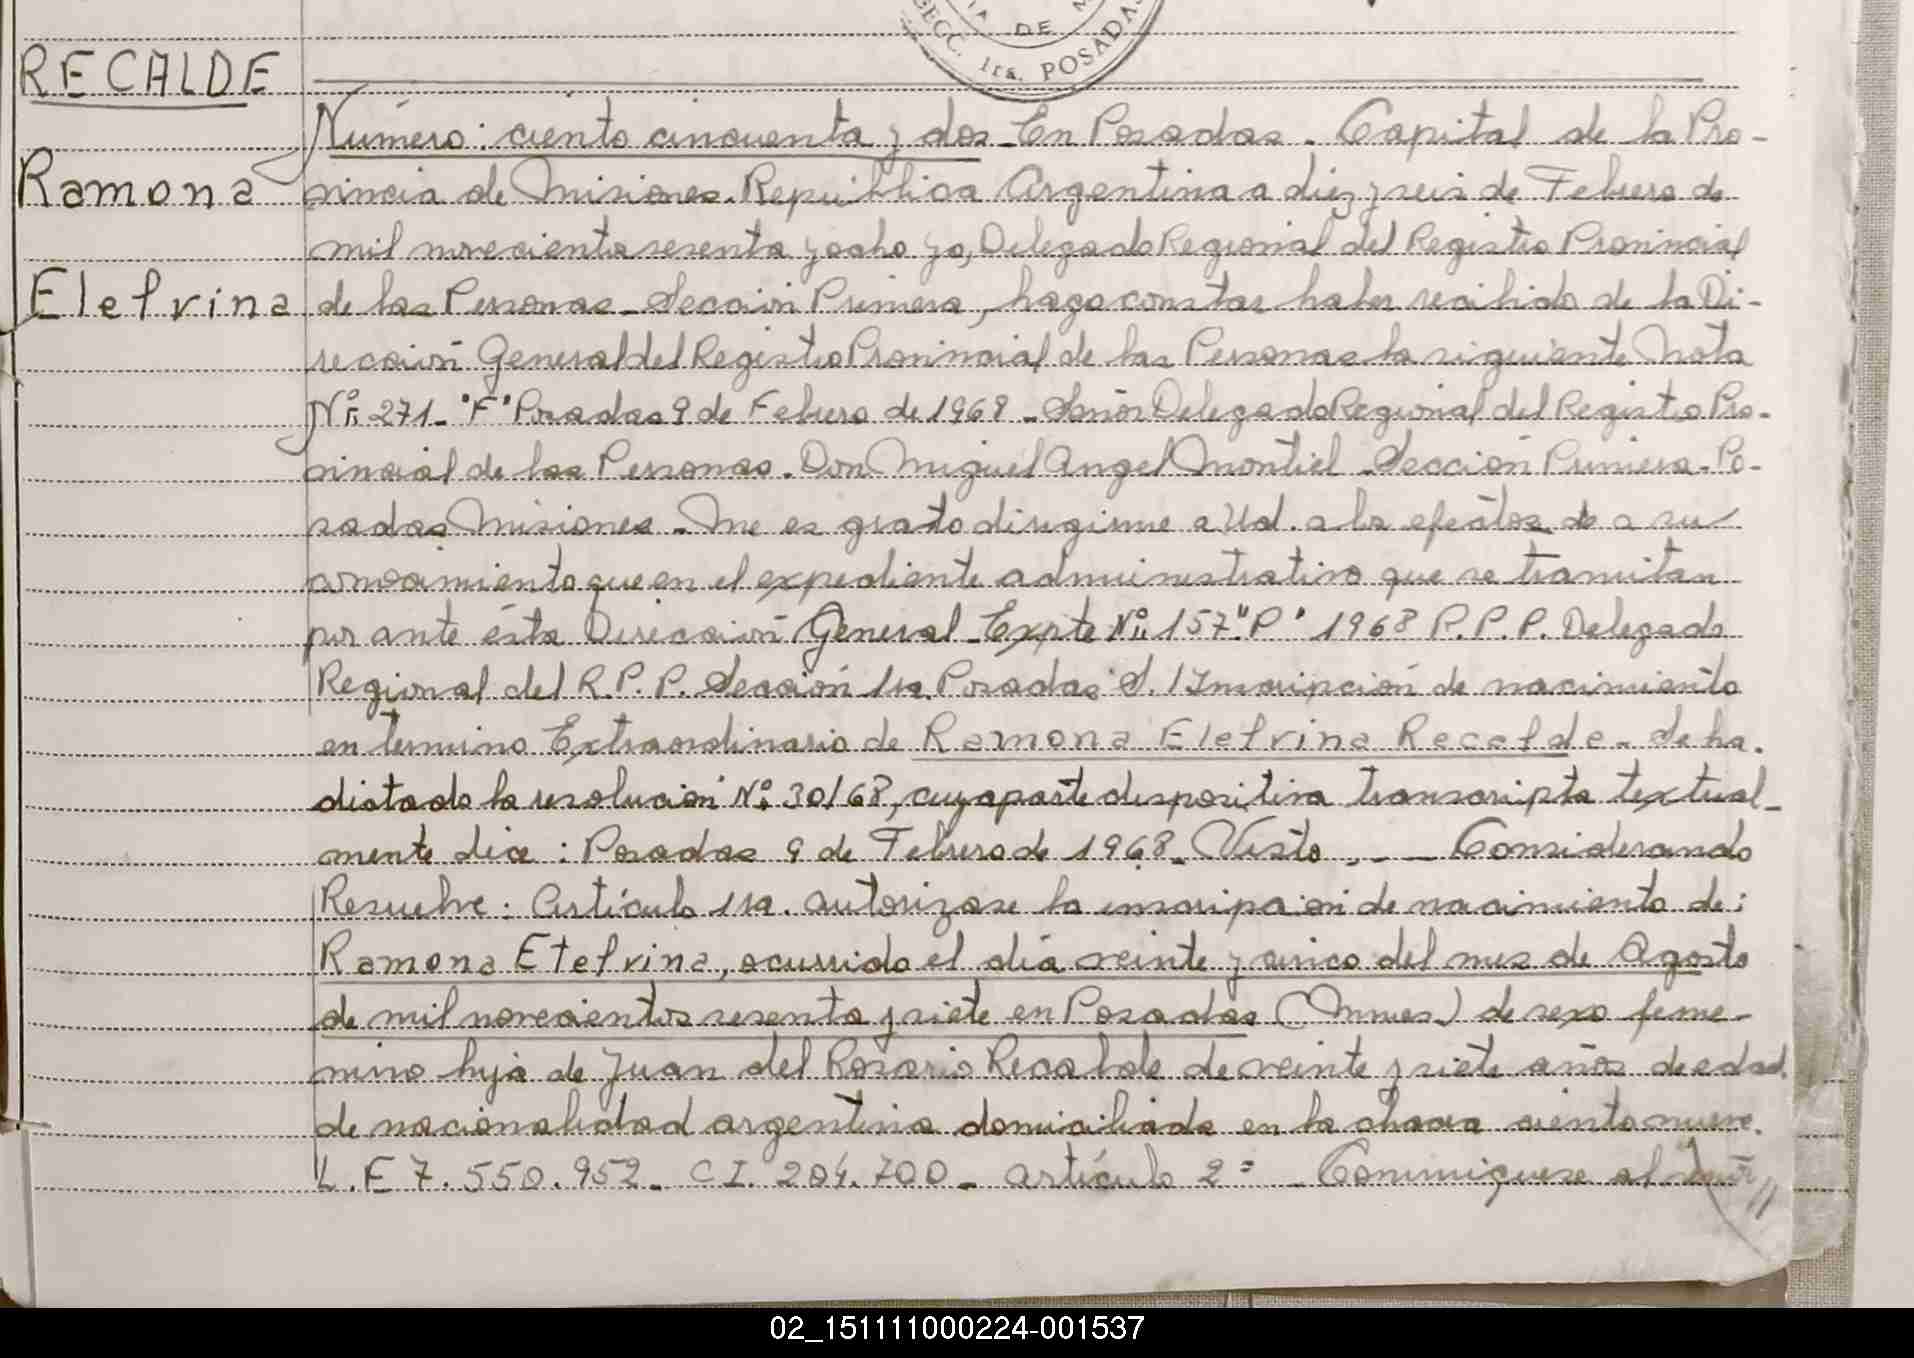 DE
SECC. 1ra. POSADAS
RECALDE
Ramona
Elelvina
Número: ciento cincuenta y dos - En Posadas. Capital de la Pro-
vincia de Misiones. República Argentina a diez y seis de Febrero de
mil novecientos sesenta y ocho yo, Delegado Regional del Registro Provincial
de las Personas - Sección Primera, hago constar haber recibido de la Di-
rección General del Registro Provincial de las Personas la siguiente Nota
Nº 271 - "F" Posadas 9 de Febrero de 1968 - Señor Delegado Regional del Registro Pro-
vincial de las Personas. Don Miguel Angel Montiel - Sección Primera - Po-
sadas Misiones - Me es grato dirigirme a Ud. a los efectos de a su
conocimiento que en el expediente administrativo que se tramitan
por ante ésta Dirección General - Expte Nº 157 "P" 1968 P.P.P. Delegado
Regional del R.P.P. Sección 1ra. Posadas S. / Inscripción de nacimiento
en termino Extraordinario de Ramona Elelvina Recalde - Se ha.
dictado la resolución Nº 30/68, cuya parte dispositiva transcripta textual-
mente dice: Posadas 9 de Febrero de 1968 - Visto . - — Considerando
Resuelve: Artículo 1ra. Autorizase la inscripción de nacimiento de:
Ramona Etelvina, ocurrido el día veinte y cinco del mes de Agosto
de mil novecientos sesenta y siete en Posadas (Mnes) de sexo feme-
nino hija de Juan del Rosario Recalde de veinte y siete años de edad.
de nacionalidad argentina domiciliado en la chacra ciento nueve.
L.E 7.550.952 - C.I. 204.700 - Artículo 2º - Comuniquese al señor //
02_151111000224-001537